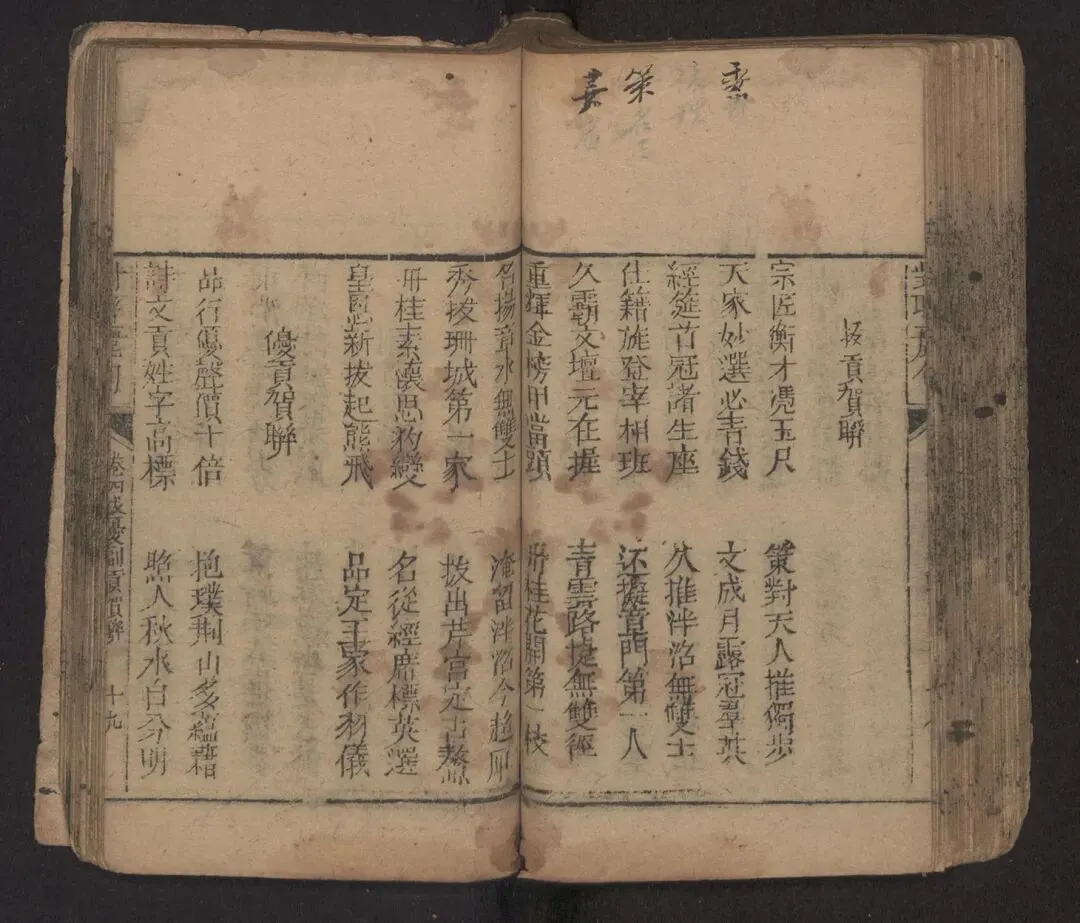 委
策
拔貢賀聯
宗匠衡才憑玉尺
策對天人推獨步
天家妙選必青錢
文成月露冠羣英
經筵首冠諸生座
久推泮沼無雙士
仕籍旋登宰相班
还擬登門第一人
久霸文壇元在握
青雲路捷無雙徑
重揮金榜甲當頭
丹桂花開第一枝
名揚章水無雙士
淹留泮沼今趨
秀拔珊城第一家
拔出芹宮定占鰲
丹桂素懷思豹變
名從經席標英選
皇恩新拔起熊飛
品定王家作羽儀
優貢賀聯
品行優聲價十倍
抱璞荆山多蘊藉
詩文貢姓字高標
臨人秋水自分明
卷四 優副貢賀聯 十九